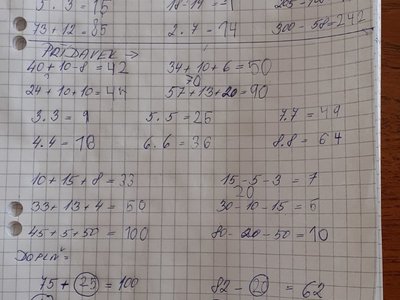 5 . 3 = 15
73 + 12 = 85 2 . 7 = 14 300 - 58 = 242
PŘÍDAVEK →
40 + 10 - 8 = 42 34 + 10 + 6 = 50
70
24 + 10 + 10 = 44 57 + 13 + 20 = 90
3 . 3 = 9 5 . 5 = 25 7 . 7 = 49
4 . 4 = 16 6 . 6 = 36 8 . 8 = 64
10 + 15 + 8 = 33 15 - 5 - 3 = 7
20
33 + 13 + 4 = 50 30 - 10 - 15 = 5
45 + 5 + 50 = 100 80 - 20 - 50 = 10
DOPLŇ:
75 + 25 = 100 82 - 20 = 62